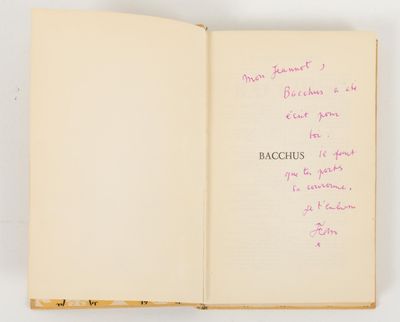 Mon Jeannot,
Bacchus a été
écrit pour
toi.
BACCHUS Il faut
que tu portes
sa couronne.
Je t'embrasse
Jean
*